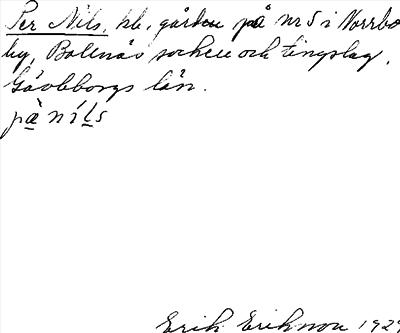 Per Nils, hb., gården på nr 5 i Norrbo
by, Bollnäs socken och tingslag,
Gävleborgs län.
pà níls
Erik Eriksson 192